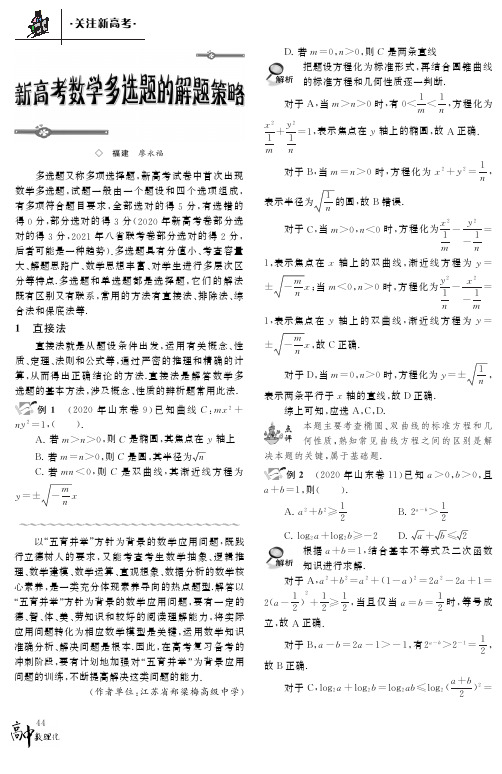 ·关注新高考·
新高考数学多选题的解题策略
◇ 福建 廖永福
多选题又称多项选择题,新高考试卷中首次出现
数学多选题,试题一般由一个题设和四个选项组成,
有多项符合题目要求,全部选对的得 5 分,有选错的
得 0 分,部分选对的得 3 分(2020 年新高考卷部分选
对的得 3 分,2021 年八省联考卷部分选对的得 2 分,
后者可能是一种趋势).多选题具有分值小、考查容量
大、解题思路广、数学思想丰富、对学生进行多层次区
分等特点.多选题和单选题都是选择题,它们的解法
既有区别又有联系,常用的方法有直接法、排除法、综
合法和保底法等.
1 直接法
直接法就是从题设条件出发,运用有关概念、性
质、定理、法则和公式等,通过严密的推理和精确的计
算,从而得出正确结论的方法.直接法是解答数学多
选题的基本方法,涉及概念、性质的辨析题常用此法.
例 1 (2020 年山东卷 9)已知曲线 C:mx²+
ny²=1,( ).
A. 若 m>n>0,则 C 是椭圆,其焦点在 y 轴上
B. 若 m=n>0,则 C 是圆,其半径为√n
C. 若 mn<0,则 C 是双曲线,其渐近线方程为
y=±√(-m/n)x
以“五育并举”方针为背景的数学应用问题,既践
行立德树人的要求,又能考查考生数学抽象、逻辑推
理、数学建模、数学运算、直观想象、数据分析的数学核
心素养,是一类充分体现素养导向的热点题型.解答以
“五育并举”方针为背景的数学应用问题,要有一定的
德、智、体、美、劳知识和较好的阅读理解能力,将实际
应用问题转化为相应数学模型是关键,运用数学知识
准确分析、解决问题是根本.因此,在高考复习备考的
冲刺阶段,要有计划地加强对“五育并举”为背景应用
问题的训练,不断提高解决这类问题的能力.
(作者单位:江苏省郑梁梅高级中学)
D. 若 m=0,n>0,则 C 是两条直线
解析 把题设方程化为标准形式,再结合圆锥曲线
的标准方程和几何性质逐一判断.
对于 A,当 m>n>0 时,有 0<1/m<1/n,方程化为
x²/(1/m)+y²/(1/n)=1,表示焦点在 y 轴上的椭圆,故 A 正确.
对于 B,当 m=n>0 时,方程化为 x²+y²=1/n,
表示半径为√(1/n)的圆,故 B 错误.
对于 C,当 m>0,n<0 时,方程化为x²/(1/m)-y²/(-1/n)=
1,表示焦点在 x 轴上的双曲线,渐近线方程为 y=
±√(-m/n)x;当 m<0,n>0 时,方程化为y²/(1/n)-x²/(-1/m)=
1,表示焦点在 y 轴上的双曲线,渐近线方程为 y=
±√(-m/n)x,故 C 正确.
对于 D,当 m=0,n>0 时,方程化为 y=±√(1/n),
表示两条平行于 x 轴的直线,故 D 正确.
综上可知,应选 A,C,D.
点评 本题主要考查椭圆、双曲线的标准方程和几
何性质,熟知常见曲线方程之间的区别是解
决本题的关键,属于基础题.
例 2 (2020 年山东卷 11)已知 a>0,b>0,且
a+b=1,则( ).
A. a²+b²≥1/2 B. 2ᵃ⁻ᵇ>1/2
C. log₂a+log₂b≥-2 D. √a+√b≤√2
解析 根据 a+b=1,结合基本不等式及二次函数
知识进行求解.
对于 A,a²+b²=a²+(1-a)²=2a²-2a+1=
2(a-1/2)²+1/2≥1/2,当且仅当 a=b=1/2时,等号成
立,故 A 正确.
对于 B,a-b=2a-1>-1,有2ᵃ⁻ᵇ>2⁻¹=1/2,
故 B 正确.
对于 C,log₂a+log₂b=log₂ab≤log₂((a+b)/2)²=
高中 数理化 44